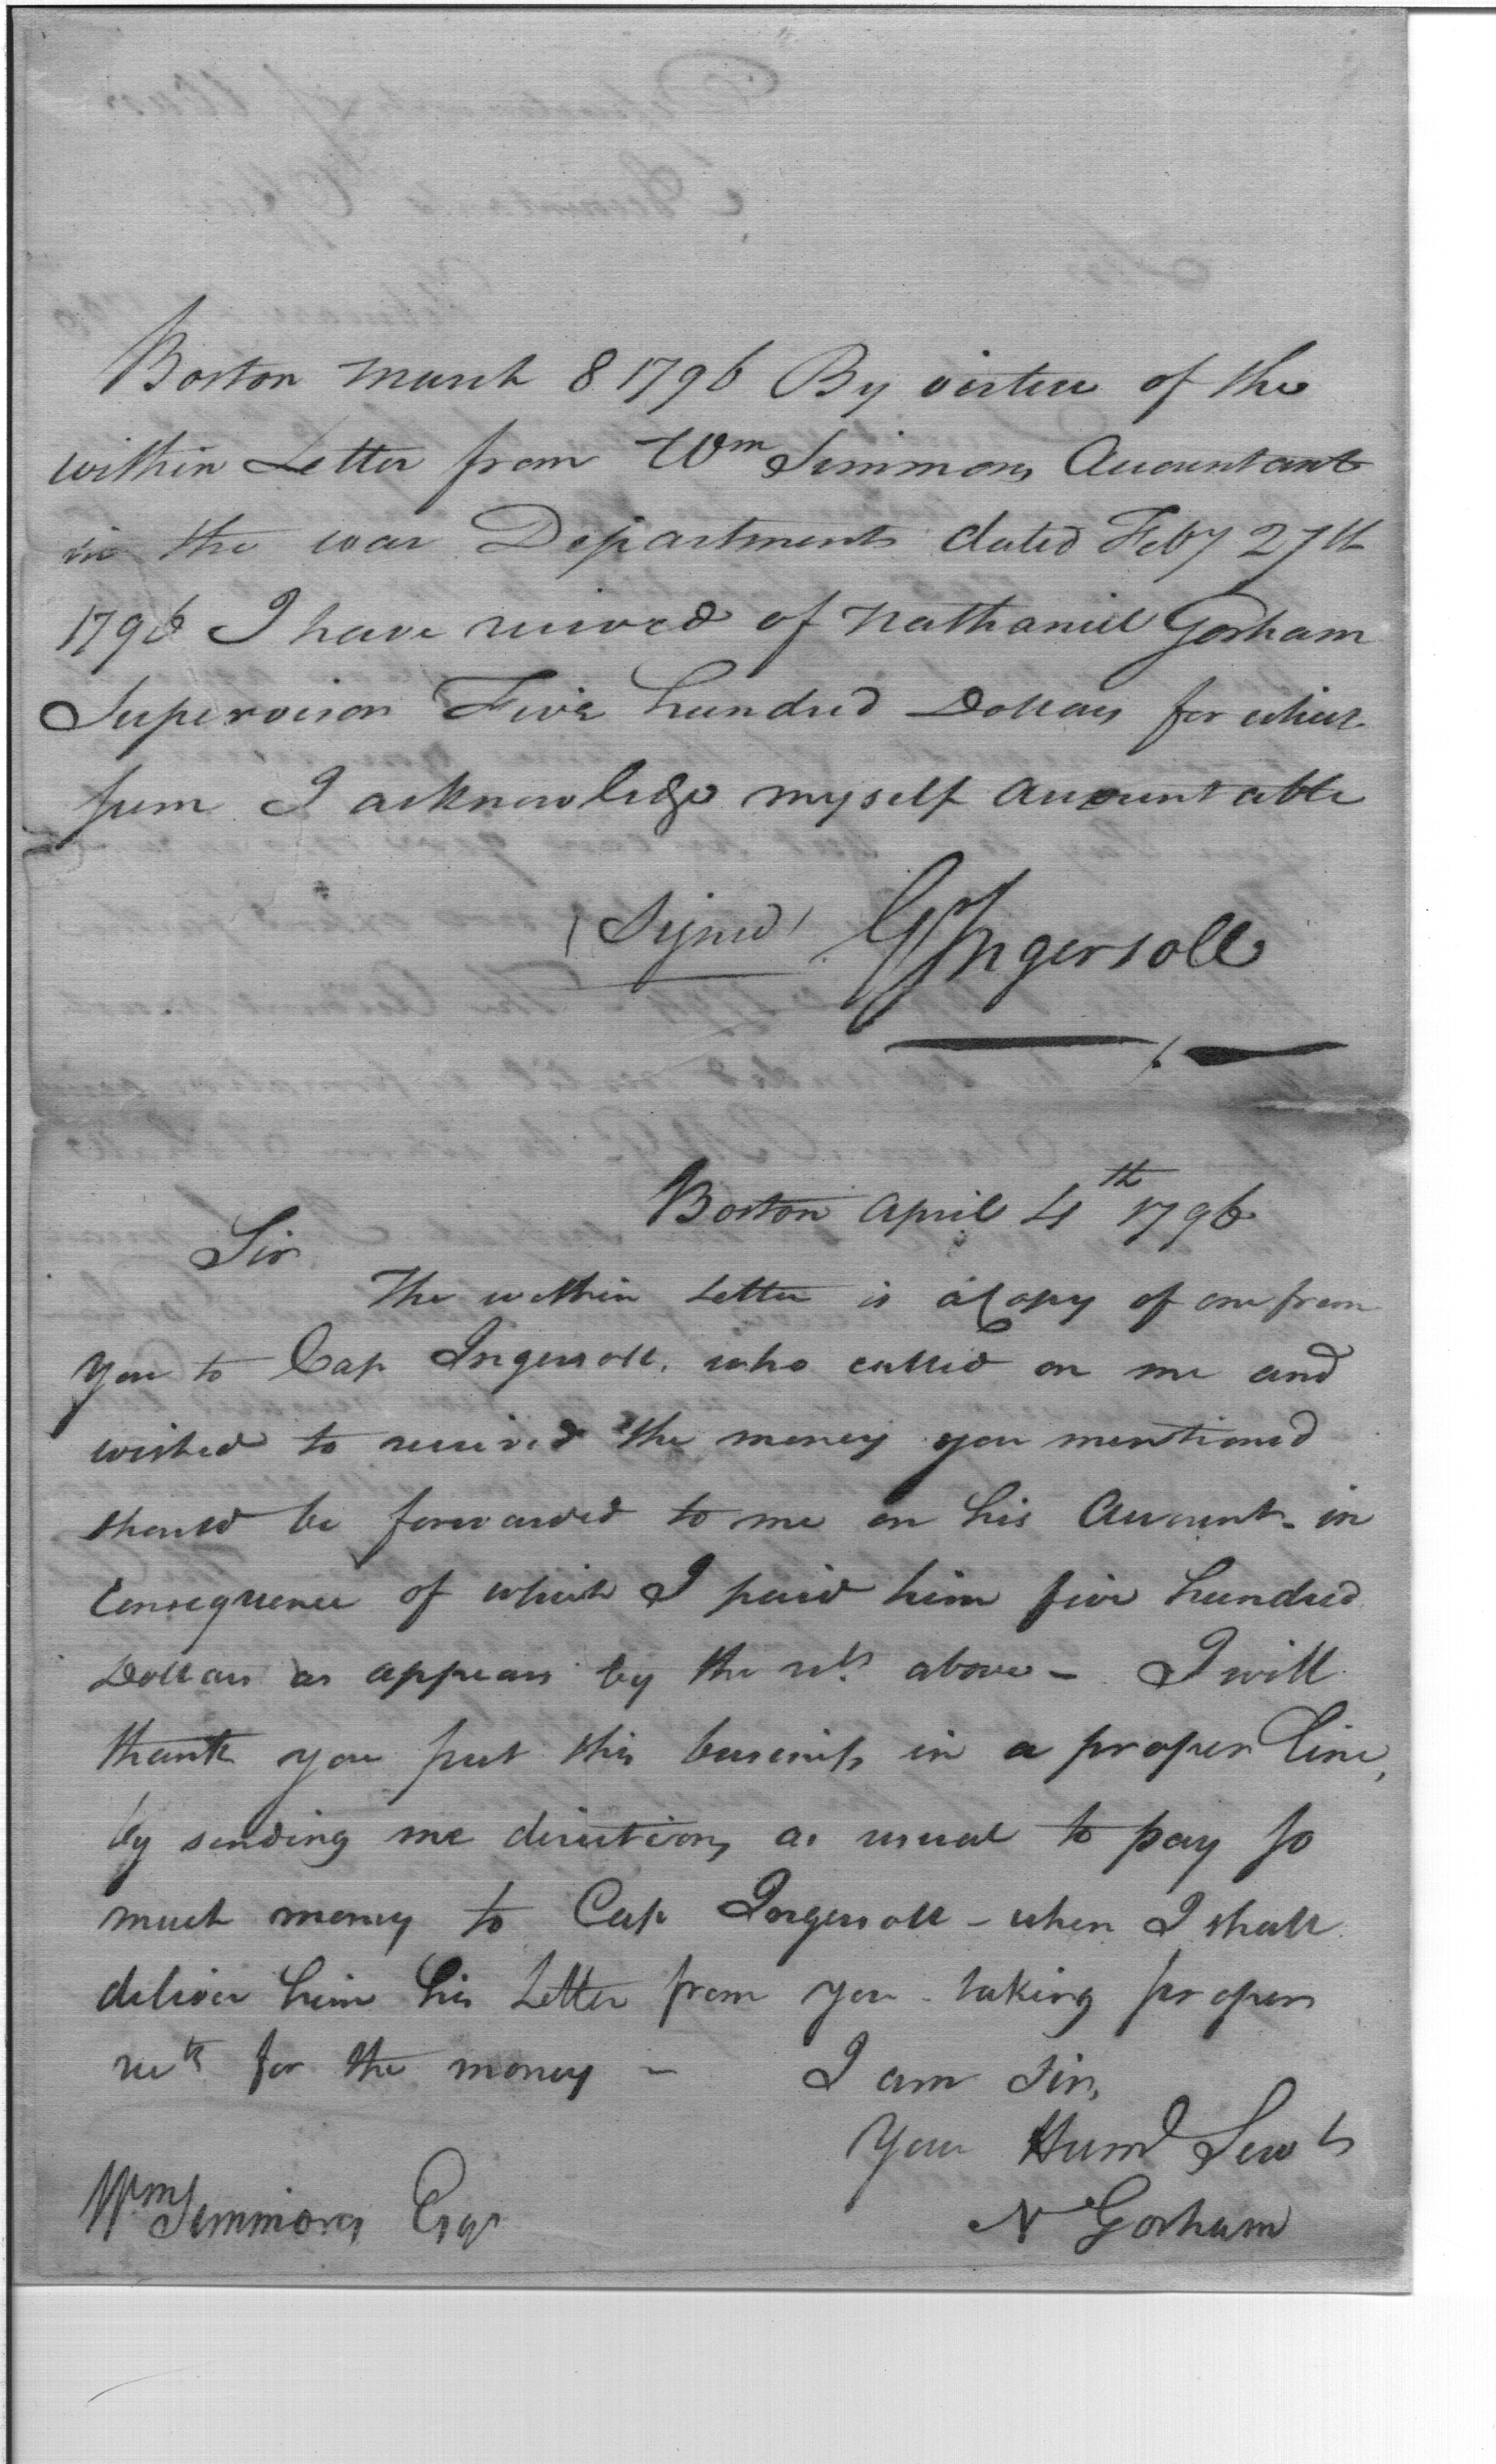 Boston March 8 1796 By virtue of the
within Letter from Wm Simmons Accountant
in the war Department dated Feby 27th
1796 I have recived of Nathaniel Gorham
Supervisor Five hundred Dollars for which
sum I acknowledge myself accountable
(Signed) G Ingersoll
Boston April 4th 1796
Sir
The within Letter is a Copy of one from
you to Cap Ingersoll. who called on me and
wished to received the money you mentioned
should be forwarded to me on his Account - in
Consequence of which I paid him five hundred
Dollars as appears by the rets above - I will
thank you put this business in a proper line,
by sending me directions as usual to pay so
much money to Cap Ingersoll - when I shall
deliver him his Letter from you - taking proper
rets for the money - I am Sir,
Your Huml Servt
Wm Simmons Esqr N Gorham